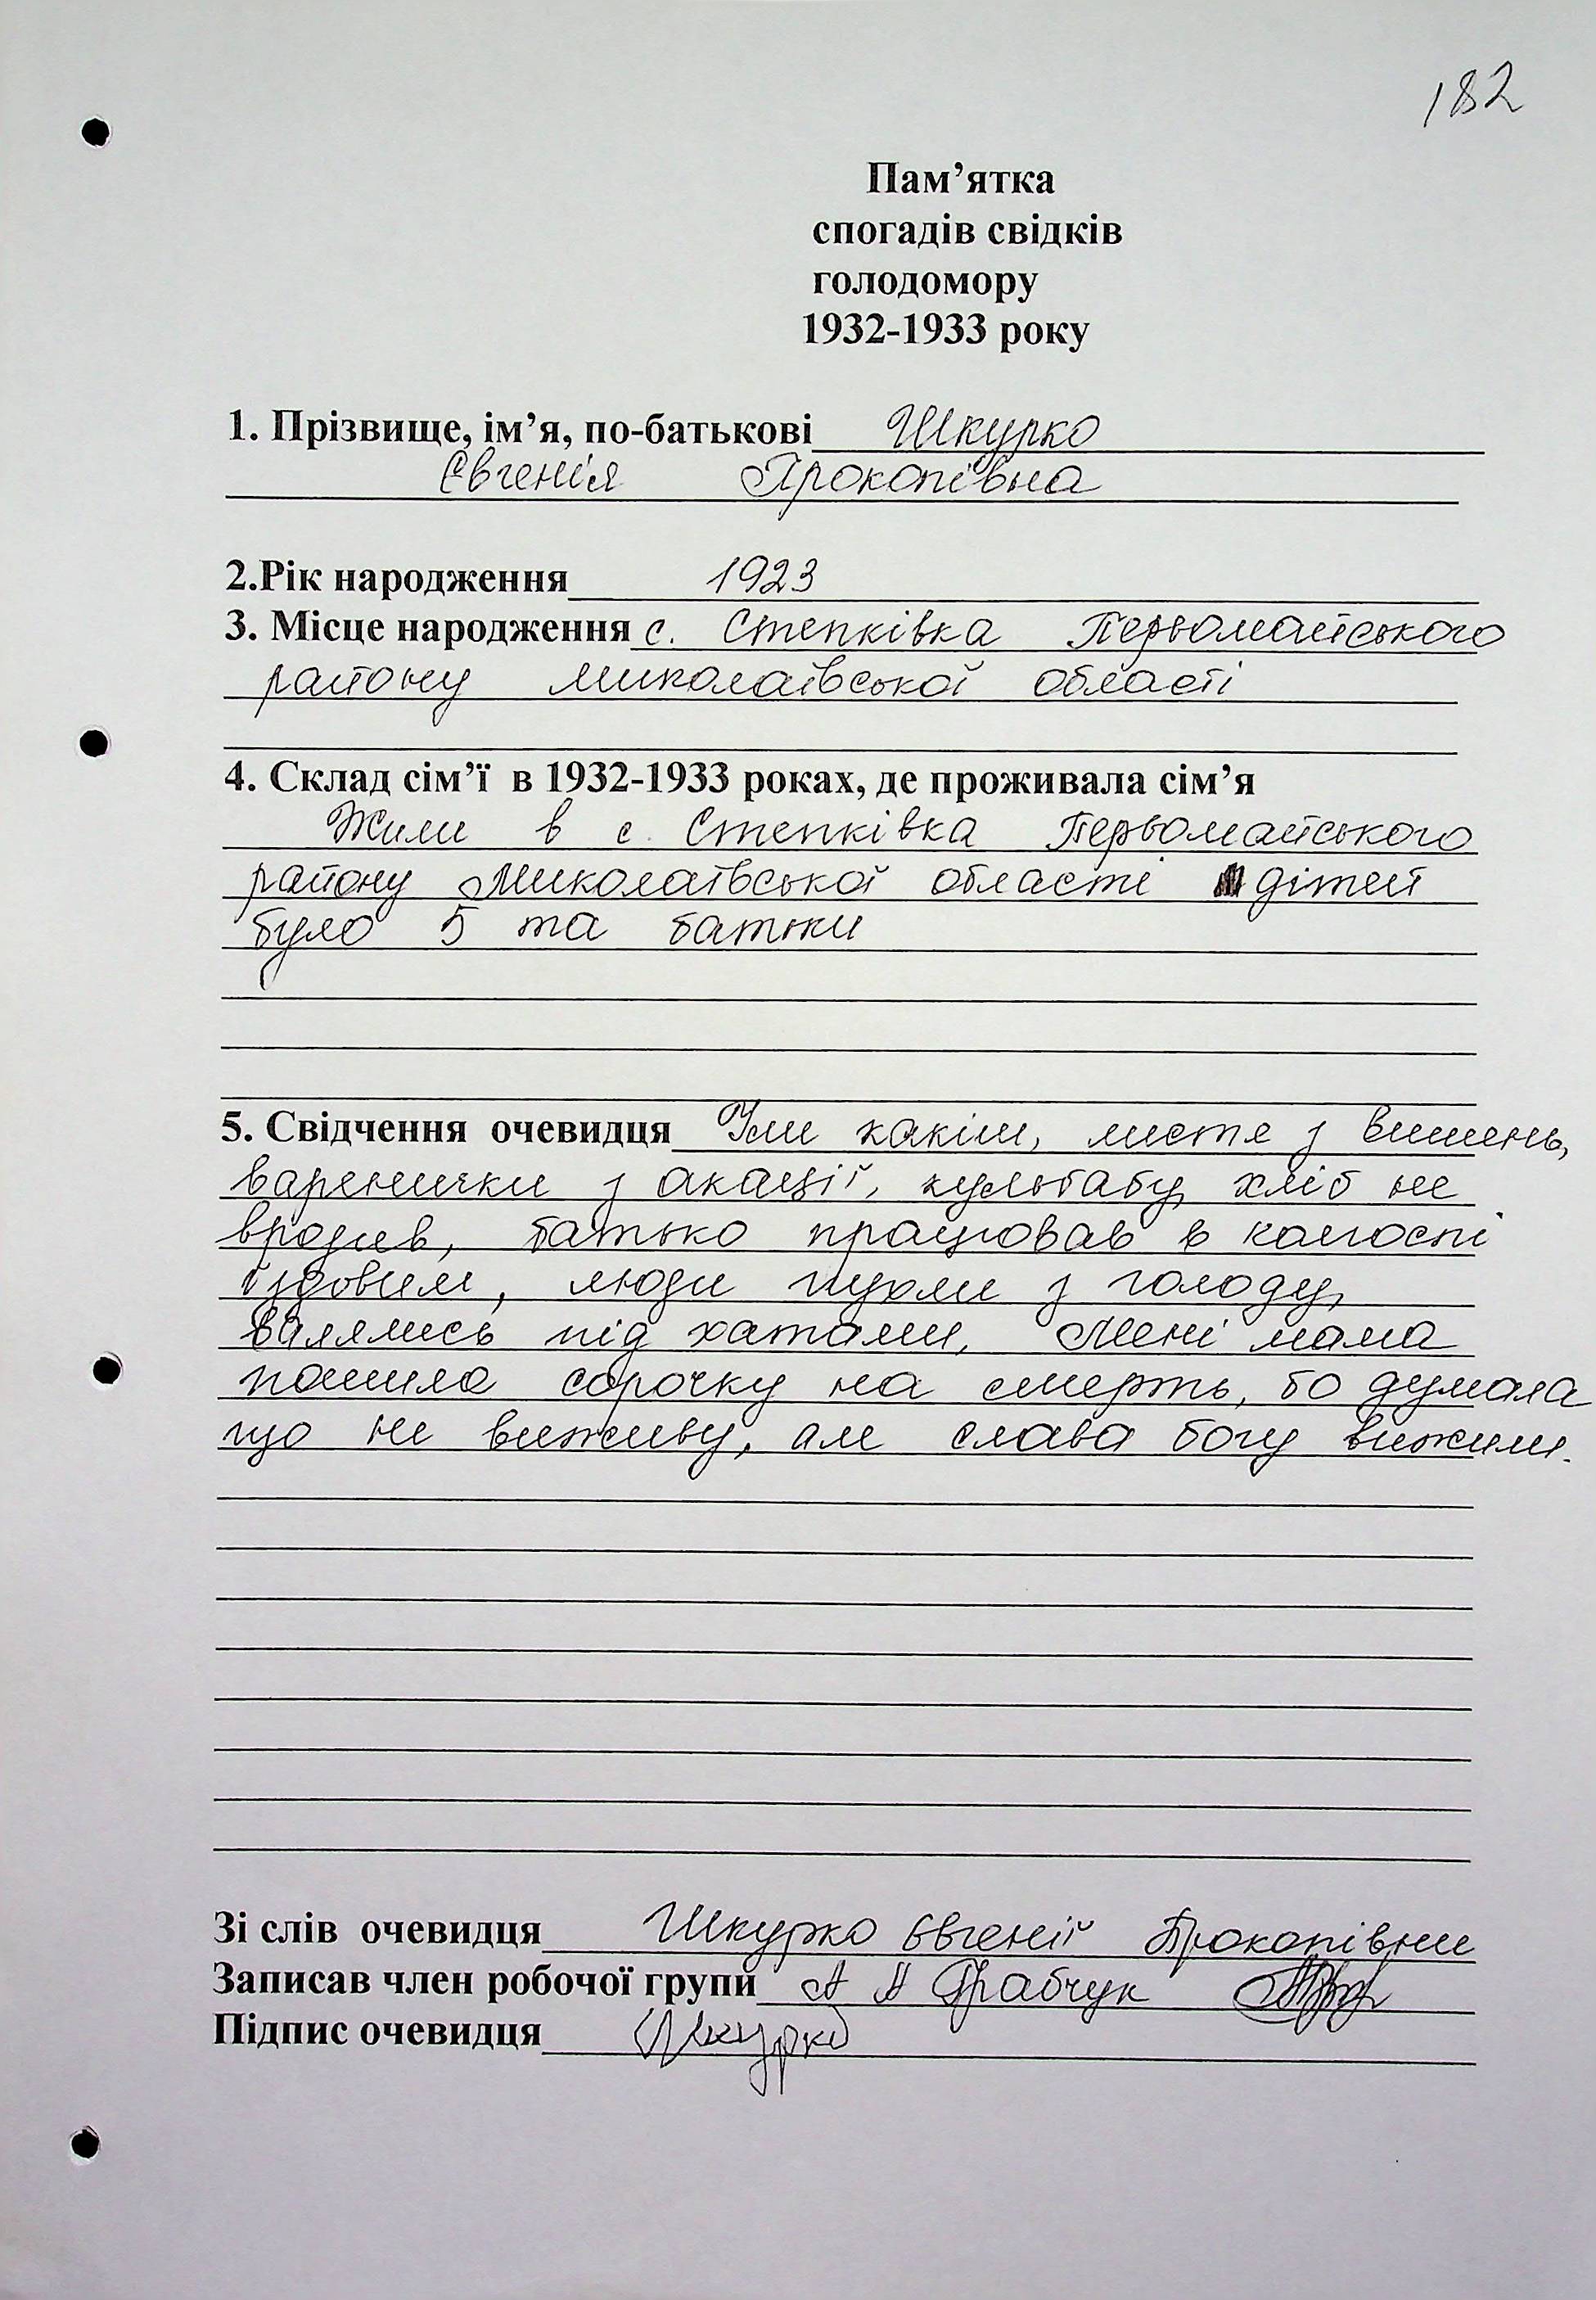 182
Пам’ятка
спогадів свідків
голодомору
1932-1933 року
1. Прізвище, ім’я, по-батькові Шкурко
Євгенія Прокопівна
2.Рік народження 1923
3. Місце народження с. Степківка Первомайського
району Миколаївської області
4. Склад сім’ї в 1932-1933 роках, де проживала сім’я
Жили в с. Степківка Первомайського
району Миколаївської області дітей
було 5 та батьки
5. Свідчення очевидця Їли качім, листя з вишень,
варенички з акації, кульбабу, хліб не
вродив, батько працював в колгоспі
їздовим, люди пухли з голоду,
валялись під хатами. Мені мама
пошила сорочку на смерть, бо думала
що не виживу, але слава богу вижили.
Зі слів очевидця Шкурко Євгенії Прокопівни
Записав член робочої групи А А Грабчук
Підпис очевидця Шкурко